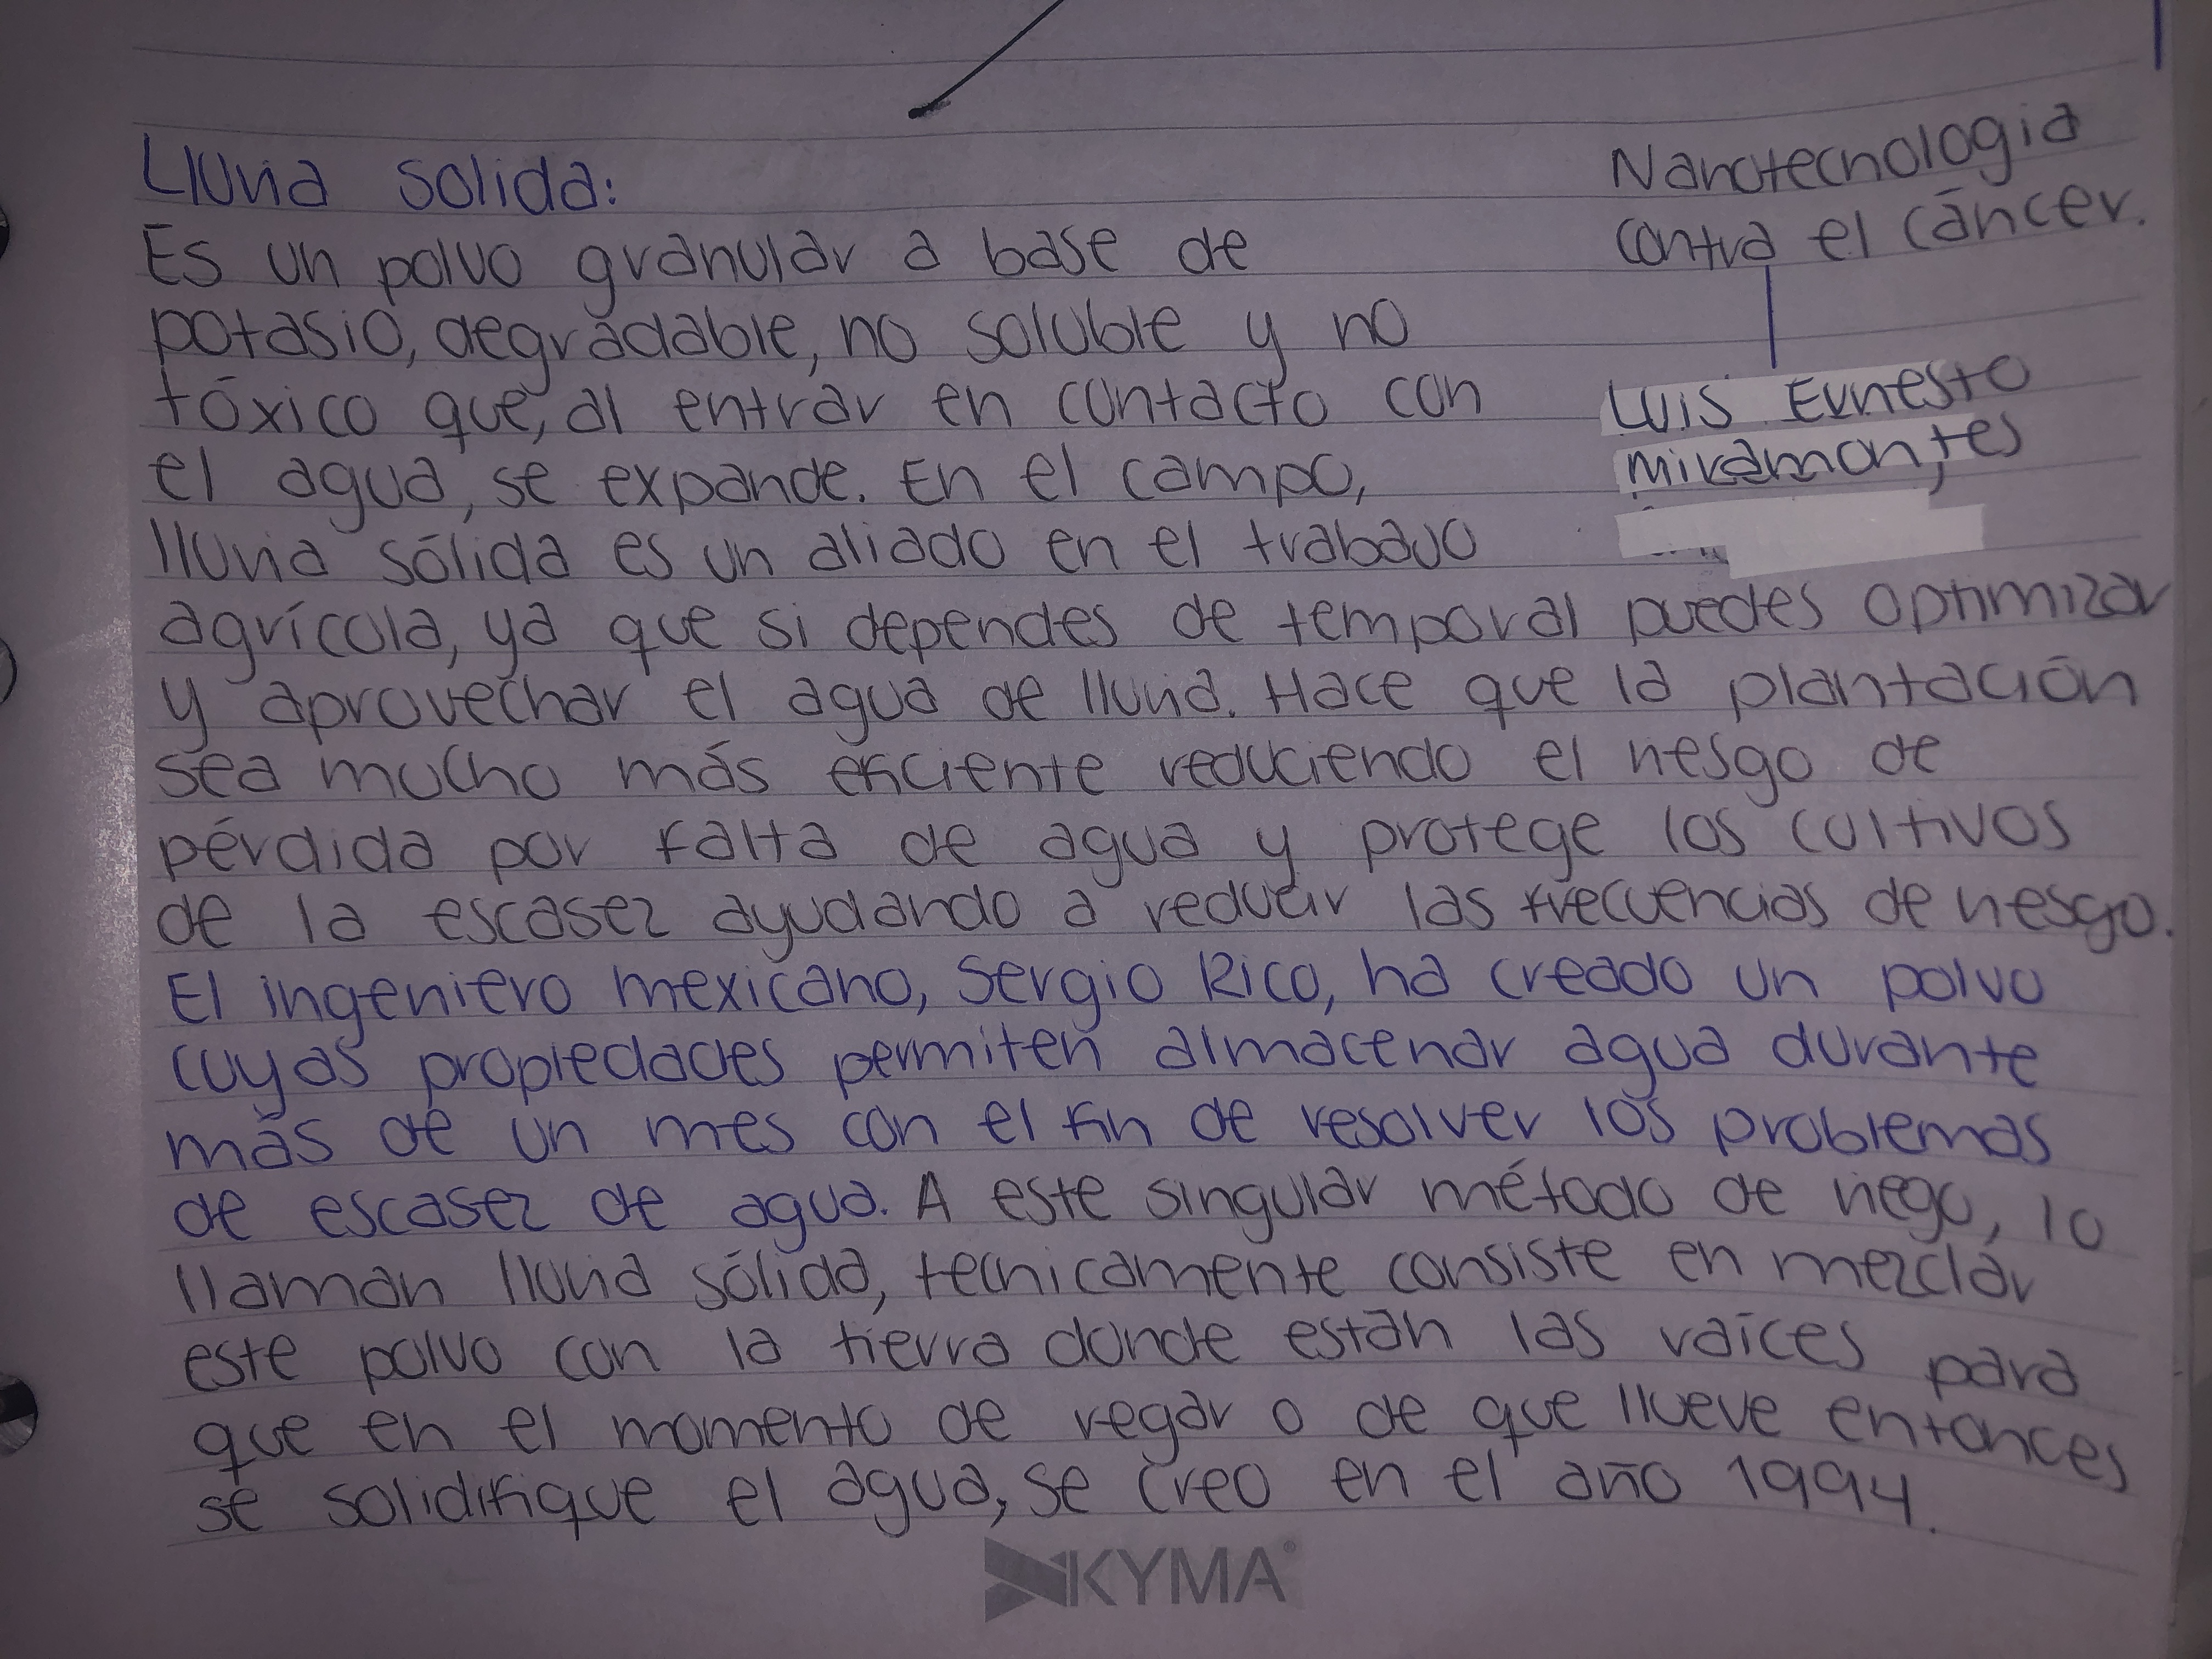 Lluvia solida:
Es un polvo granular a base de
potasio, degradable, no soluble y no
tóxico que, al entrar en contacto con
el agua, se expande. En el campo,
lluvia sólida es un aliado en el trabajo
agrícola, ya que si dependes de temporal puedes optimizar
y aprovechar el agua de lluvia. Hace que la plantación
sea mucho más eficiente reduciendo el riesgo de
pérdida por falta de agua y protege los cultivos
de la escasez ayudando a reducir las frecuencias de riesgo.
El ingeniero mexicano, Sergio Rico, ha creado un polvo
cuyas propiedades permiten almacenar agua durante
más de un mes con el fin de resolver los problemas
de escasez de agua. A este singular método de riego, lo
llaman lluvia sólida, tecnicamente consiste en mezclar
este polvo con la tierra donde están las raíces para
que en el momento de regar o de que llueve entonces
se solidifique el agua, se creo en el año 1994.
Nanotecnologia
contra el cáncer.
Luis Ernesto
miramontes
KYMA